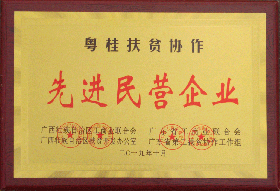 粤桂扶贫协作
先进民营企业
广西壮族自治区工商业联合会 广东省工商业联合会
广西壮族自治区扶贫开发办公室 广东省第二扶贫协作工作组
二〇一九年一月